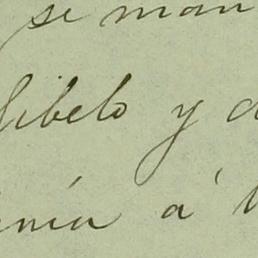 se man
libelo y d
enía á